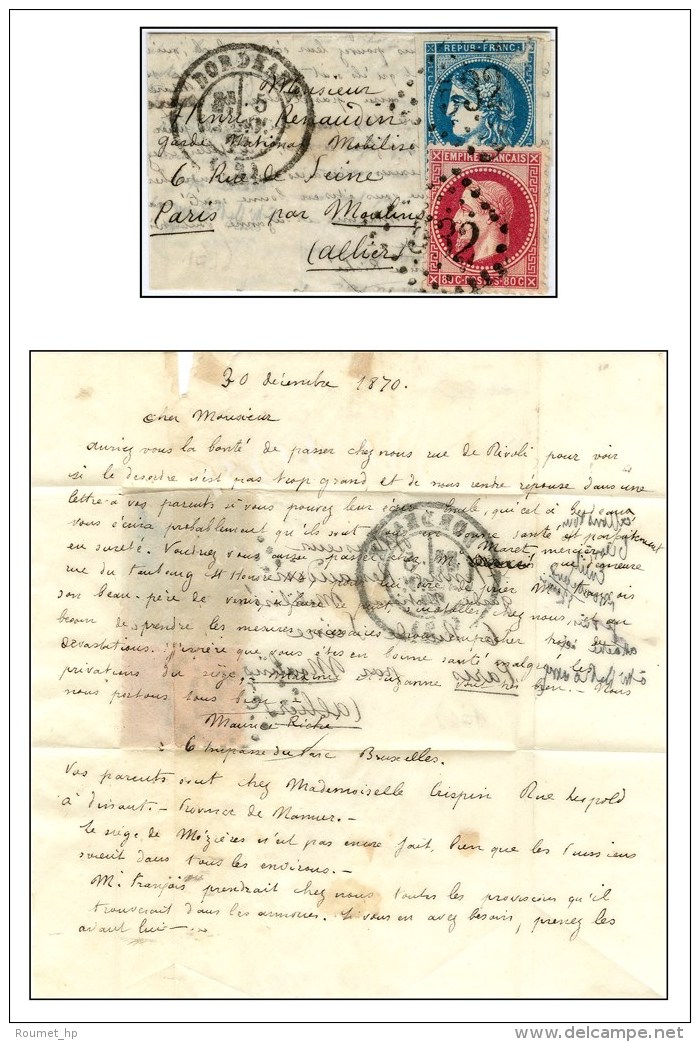 BORDEAUX
5
REPUB. FRANC.
32
EMPIRE FRANCAIS
32
80C-POSTES-80C
Monsieur
Henri Renaudin
Garde National Mobilisé
6 Rue de Seine
Paris par Moulins
(allier)
30 décembre 1870.
cher Monsieur
auriez vous la bonté de passer chez nous rue de Rivoli pour voir
si le desordre n'est pas trop grand et de nous rendre réponse dans une
lettre à vos parents si vous pouvez leur écrire
vous saura probablement qu'ils sont tous en bonne santé et parfaitement
en sureté. Voudriez vous aussi passer chez M. Maret, mercier
rue du faubourg St Honoré de prier M. François
son beau-père de venir chez nous, au
besoin de prendre les mesures nécessaires pour empêcher trop de
dévastations. J'espère que vous êtes en bonne santé malgré les
privations du siège. Maxime Suzanne vont très bien. Nous
nous portons tous bien
Maurice
6 Impasse du Parc Bruxelles.
Vos parents sont chez Mademoiselle Crispin Rue Leopold
à Dinant. - Province de Namur. -
Le siège de Mézières n'est pas encore fait, bien que les Prussiens
soient dans tous les environs. -
M. François prendrait chez nous toutes les provisions qu'il
trouverait dans les armoires. Si vous en avez besoin, prenez les
avant lui -
Roumet_hp
delcampe.net